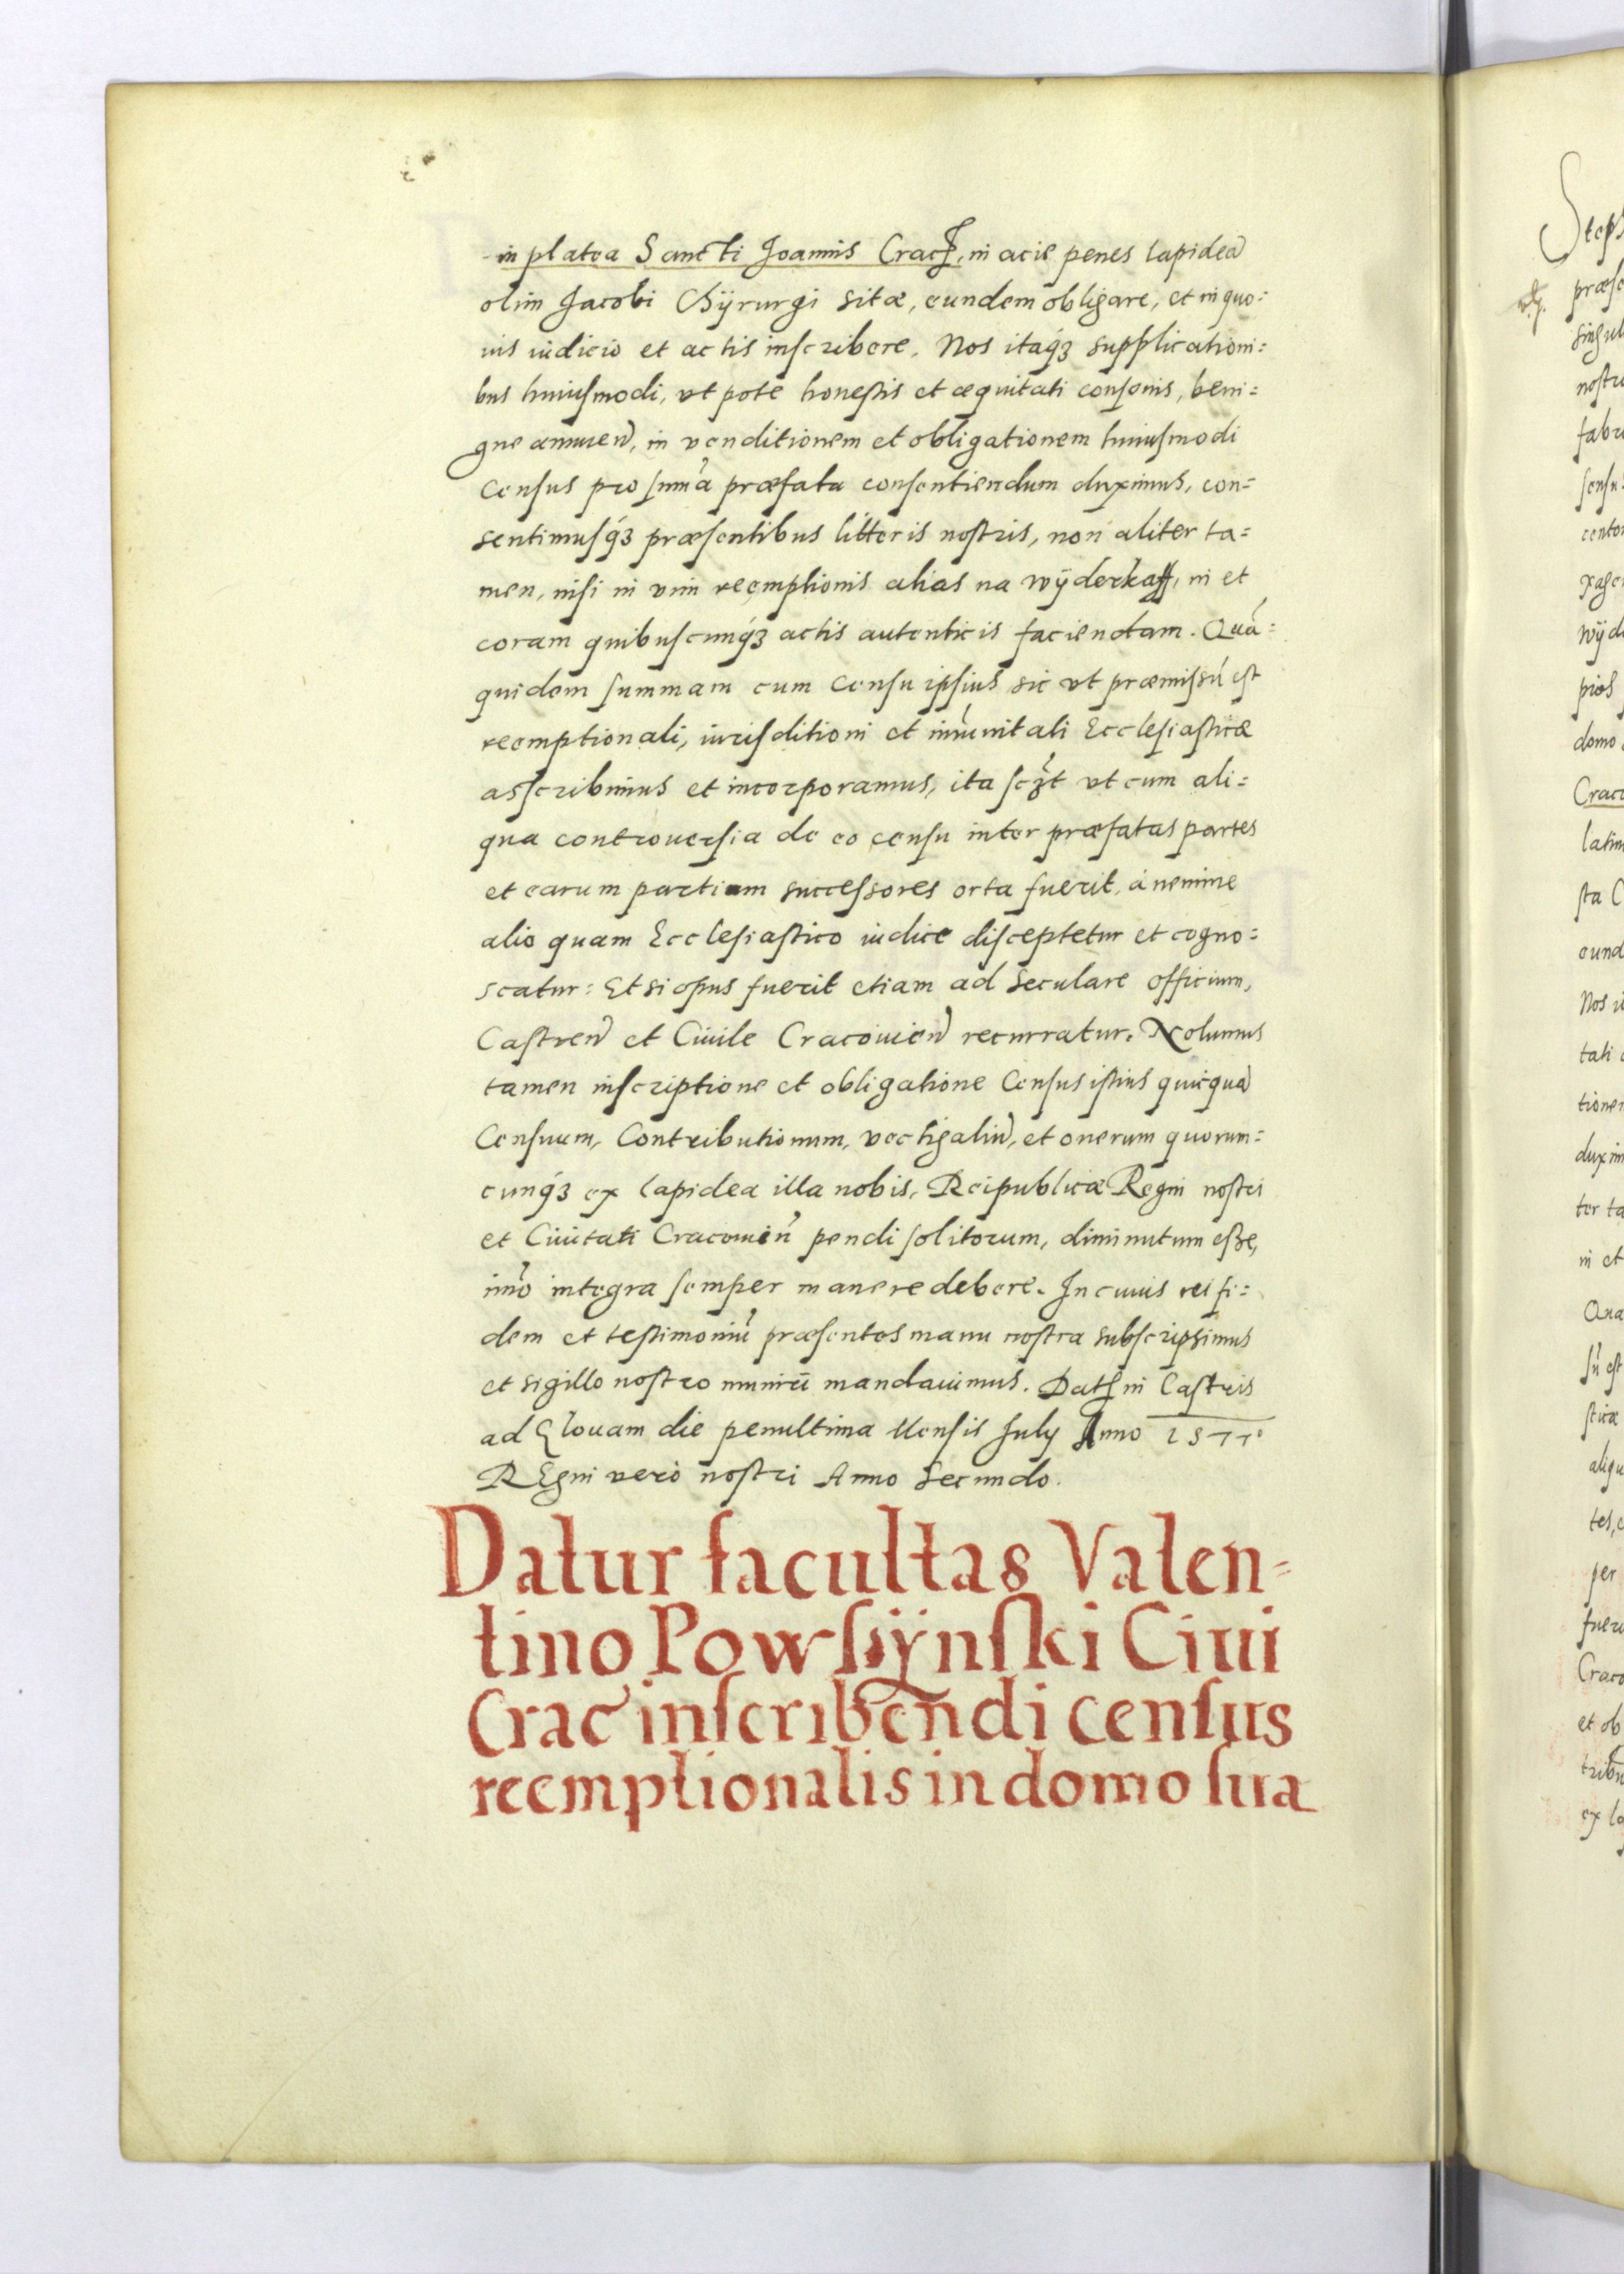 in platea Sancti Joannis Crac, in acie penes lapideã
olim Jacobi Chÿrurgi sitæ, eundem obligare, et in quo=
uis iudicio et actis inscribere. Nos itaq́ꝫ supplicationi=
bus huiusmodi, vt pote honestis et æquitati consonis, beni=
gne annuen̄, in venditionem et obligationem huiusmodi
Census pro sum̃a præfata consentiendum duximus, con=
sentimusq́ꝫ præsentibus litteris nostris, non aliter ta=
men, nisi in vim reemptionis alias na wÿderkaff, in et
coram quibuscunq́ꝫ actis autenticis faciendam. Quã=
quidem summam cum Censu ipsius sic vt præmissũ est
reemptionali, iurisditioni et im̃unitati Ecclesiasticæ
asscribimus et incorporamus, ita scꝫt vt cum ali=
qua controuersia de eo censu inter præfatas partes
et earum partium successores orta fuerit, á nemine
alio quam Ecclesiastico iudice disceptetur et cogno=
scatur: Et si opus fuerit etiam ad Seculare officium,
Castren̄ et Ciuile Cracouien̄ recurratur. Nolumus
tamen inscriptione et obligatione Census istius quicquã
Censuum, Contributionum, vectigaliũ, et onerum quorum=
cunq́ꝫ ex lapidea illa nobis, Reipublicæ Regni nostri
et Ciuitati Cracouien̄ pendi solitorum, diminutum esse,
im̃o integra semper manere debere. In cuius rei fi=
dem et testimoniũ præsentes manu nostra subscripsimus
et sigillo nostro muniri mandauimus. Dat in Castris
ad Glouam die penultima Mensis July Anno 1577°
REgni verò nostri Anno Secundo.
Datur facultas Valen=
tino Powsÿnski Ciui
Crac inscribendi census
reemptionalis in domo sua